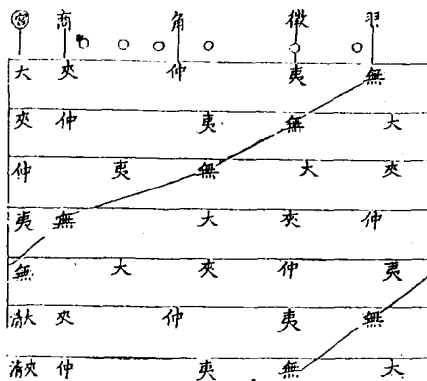 宮 商 角 徵 羽
大 夾 仲 夷 無
夾 仲 夷 無 大
仲 夷 無 大 夾
夷 無 大 夾 仲
無 大 夾 仲 夷
清大 夾 仲 夷 無
清夾 仲 夷 無 大